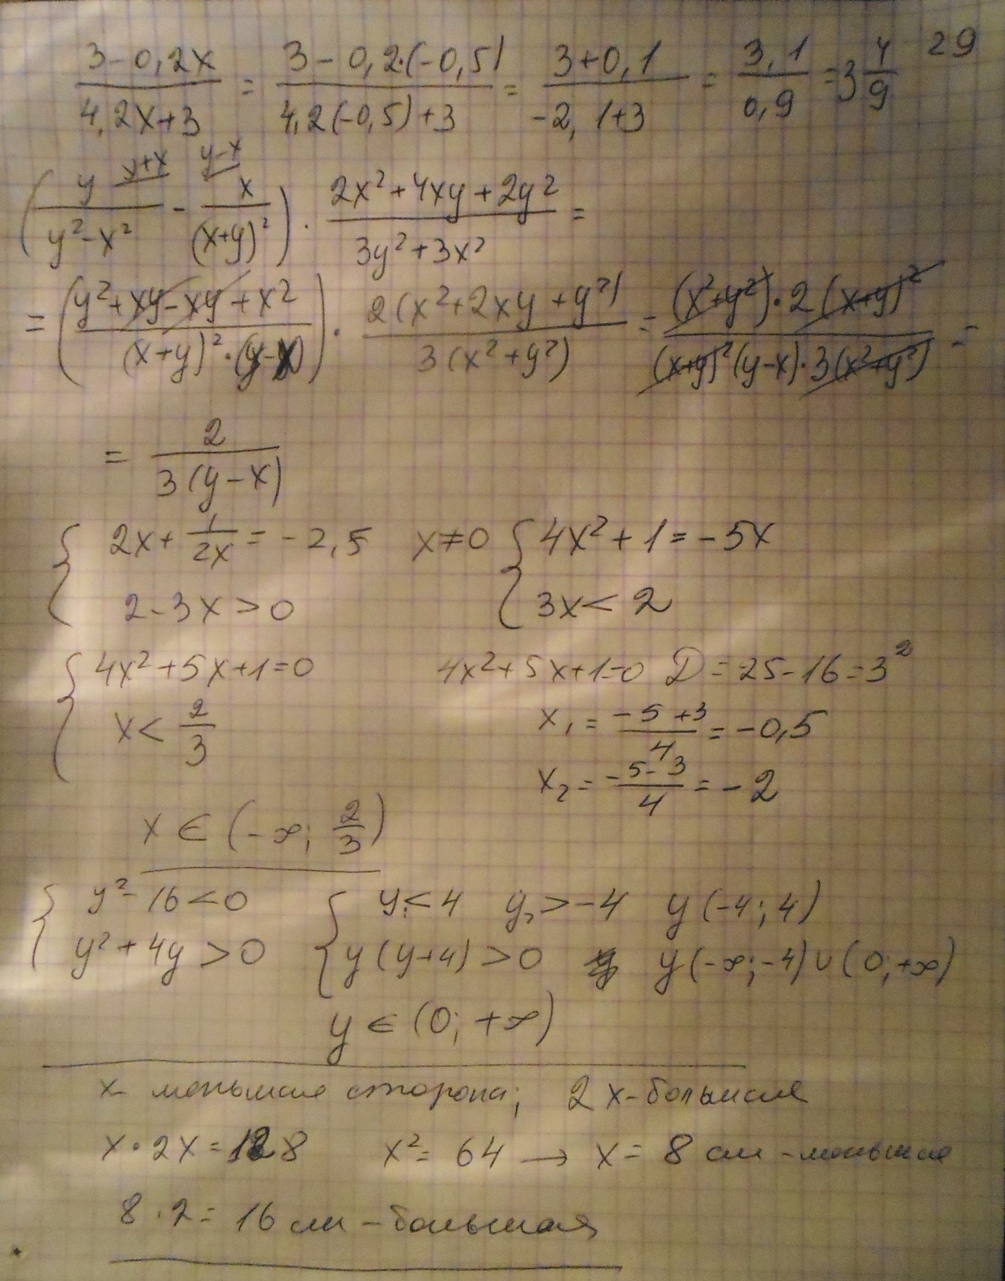 29
(3-0,2x)/(4,2x+3) = (3-0,2·(-0,5))/(4,2(-0,5)+3) = (3+0,1)/(-2,1+3) = 3,1/0,9 = 3 4/9
y+x y-x
(y/(y²-x²) - x/(x+y)²) · (2x²+4xy+2y²)/(3y²+3x²) =
= ((y²+xy-xy+x²)/((x+y)²·(y-x))) · 2(x²+2xy+y²)/(3(x²+y²)) = ((x²+y²)·2(x+y)²)/((x+y)²(y-x)·3(x²+y²)) =
= 2/(3(y-x))
{ 2x + 1/2x = -2,5 x≠0 { 4x²+1=-5x
2-3x>0 3x<2
{ 4x²+5x+1=0 4x²+5x+1=0 D=25-16=3²
x< 2/3 x₁= (-5+3)/4 = -0,5
x₂= (-5-3)/4 = -2
x ∈ (-∞; 2/3)
{ y²-16<0 { y₁<4 y₂>-4 y(-4;4)
y²+4y>0 y(y+4)>0 y(-∞;-4)∪(0;+∞)
y ∈ (0;+∞)
x- меньшая сторона; 2x-большая
x·2x=128 x²=64 → x= 8 см -меньшая
8·2=16 см -большая